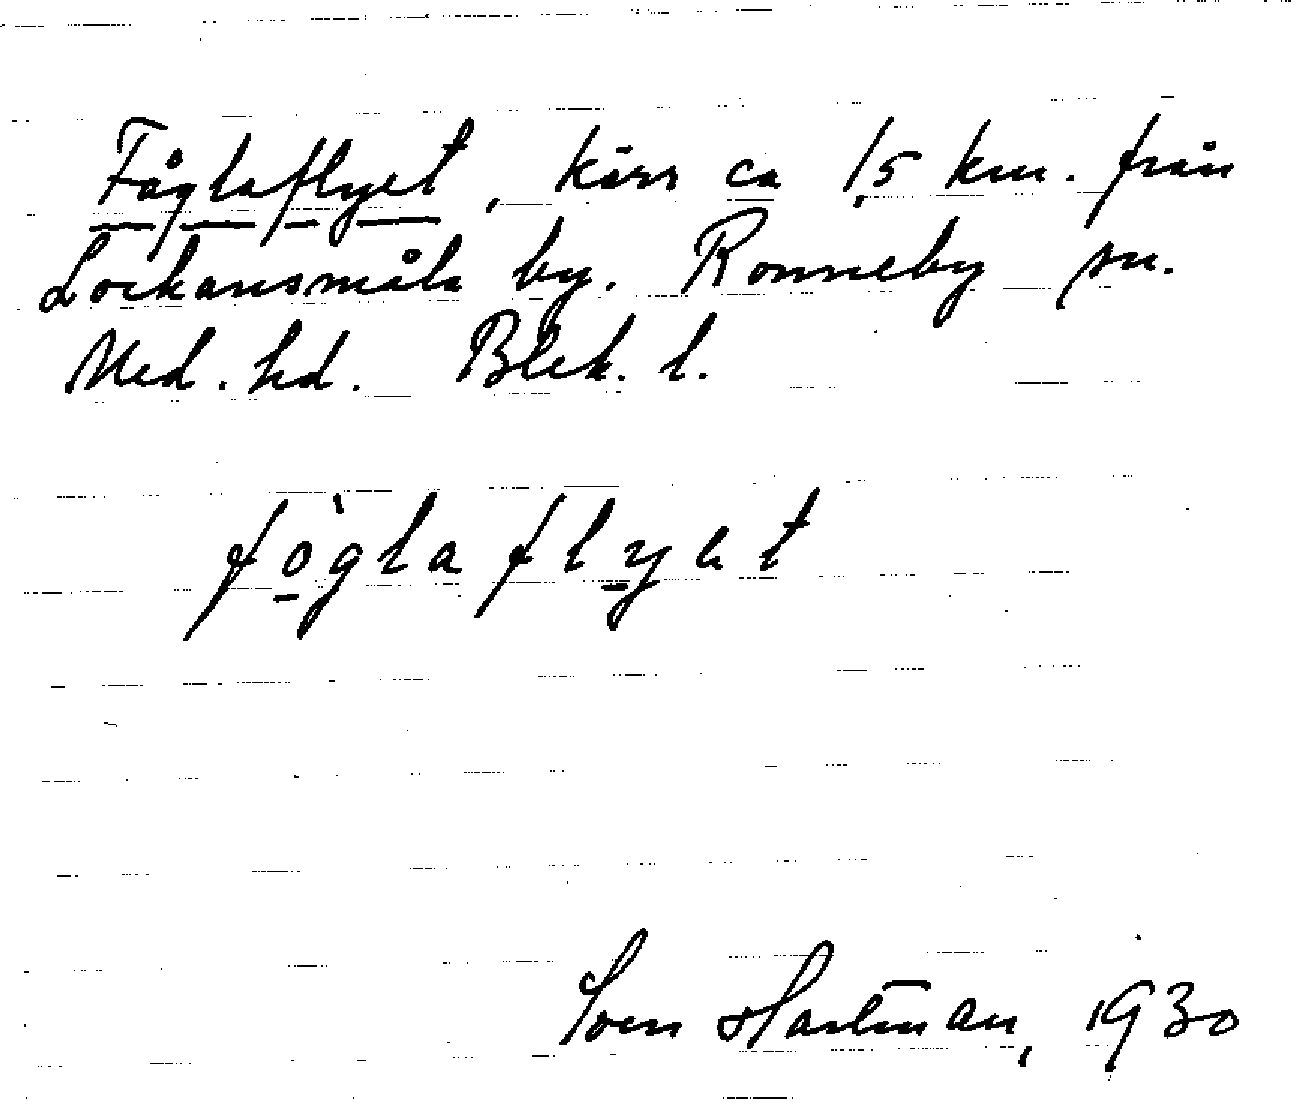 Fåglaflyet, kärr ca 1,5 km. från
Lockansmåla by. Ronneby sn.
Med. hd. Blek. l.
fò̲glafly̲et
Sven Hartman, 1930